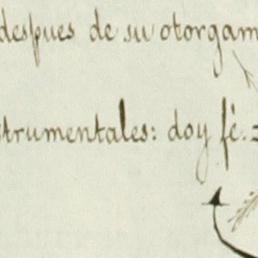 despues de su otorgam
trumentales: doy fé.=